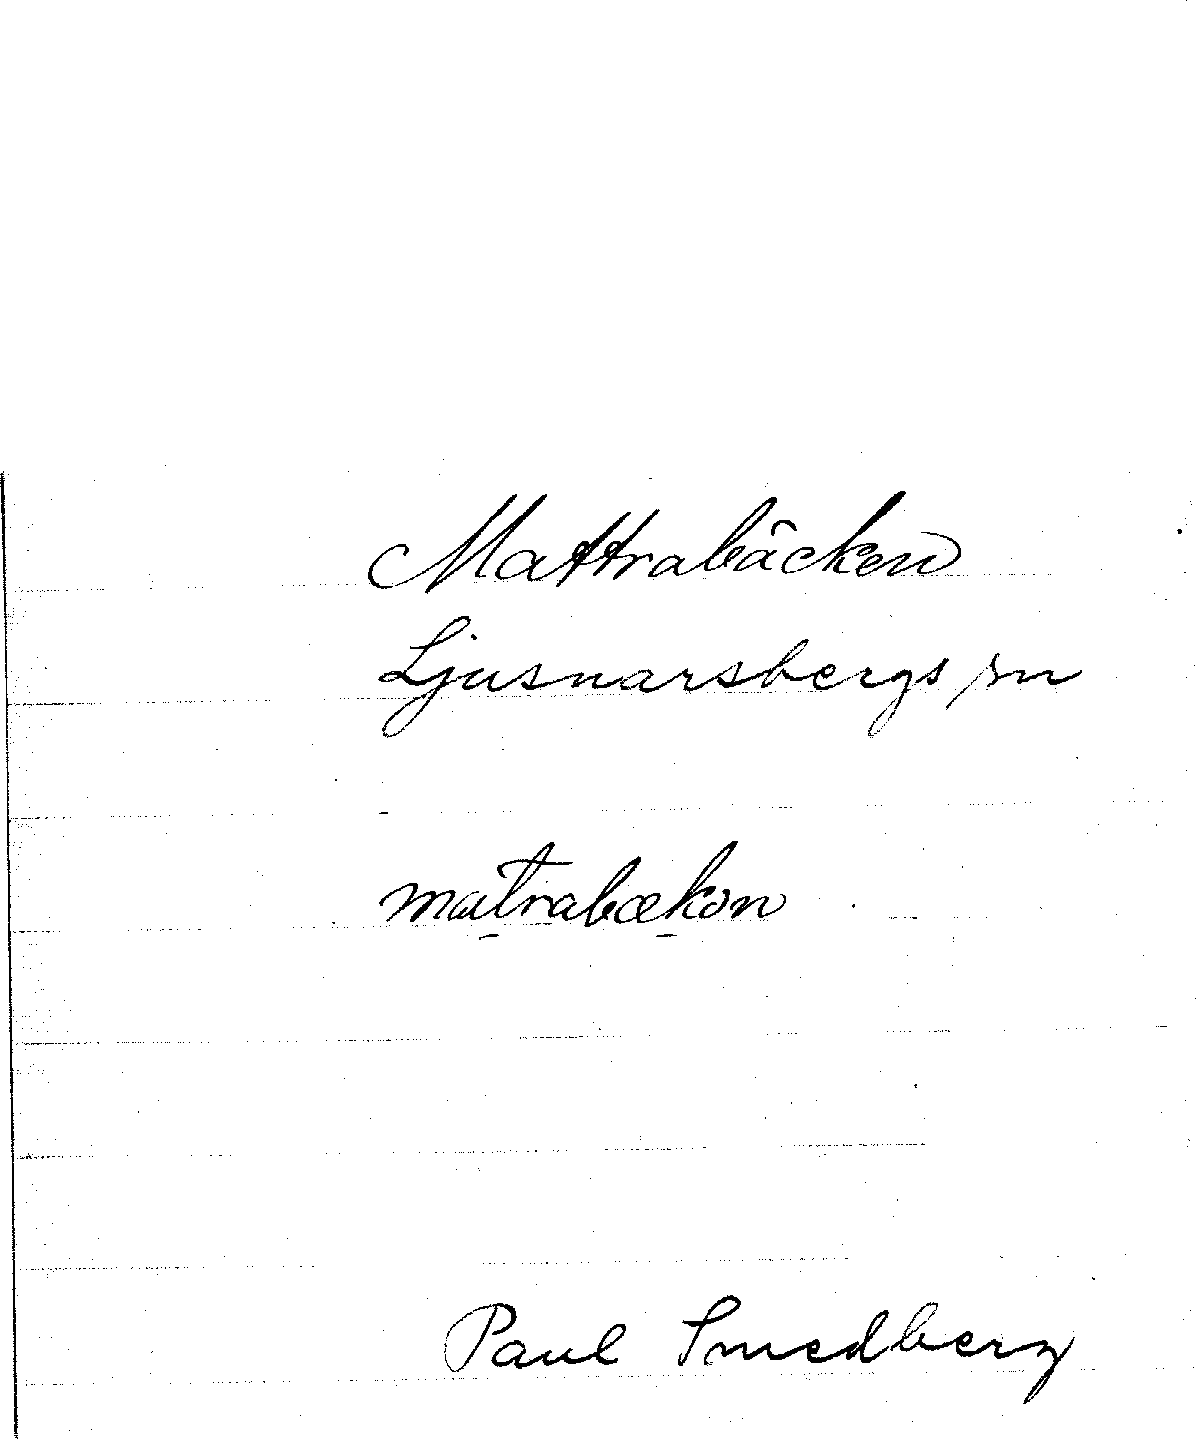 Mattrabäcken
Ljusnarsbergs sn
matrabækən
Paul Smedberg